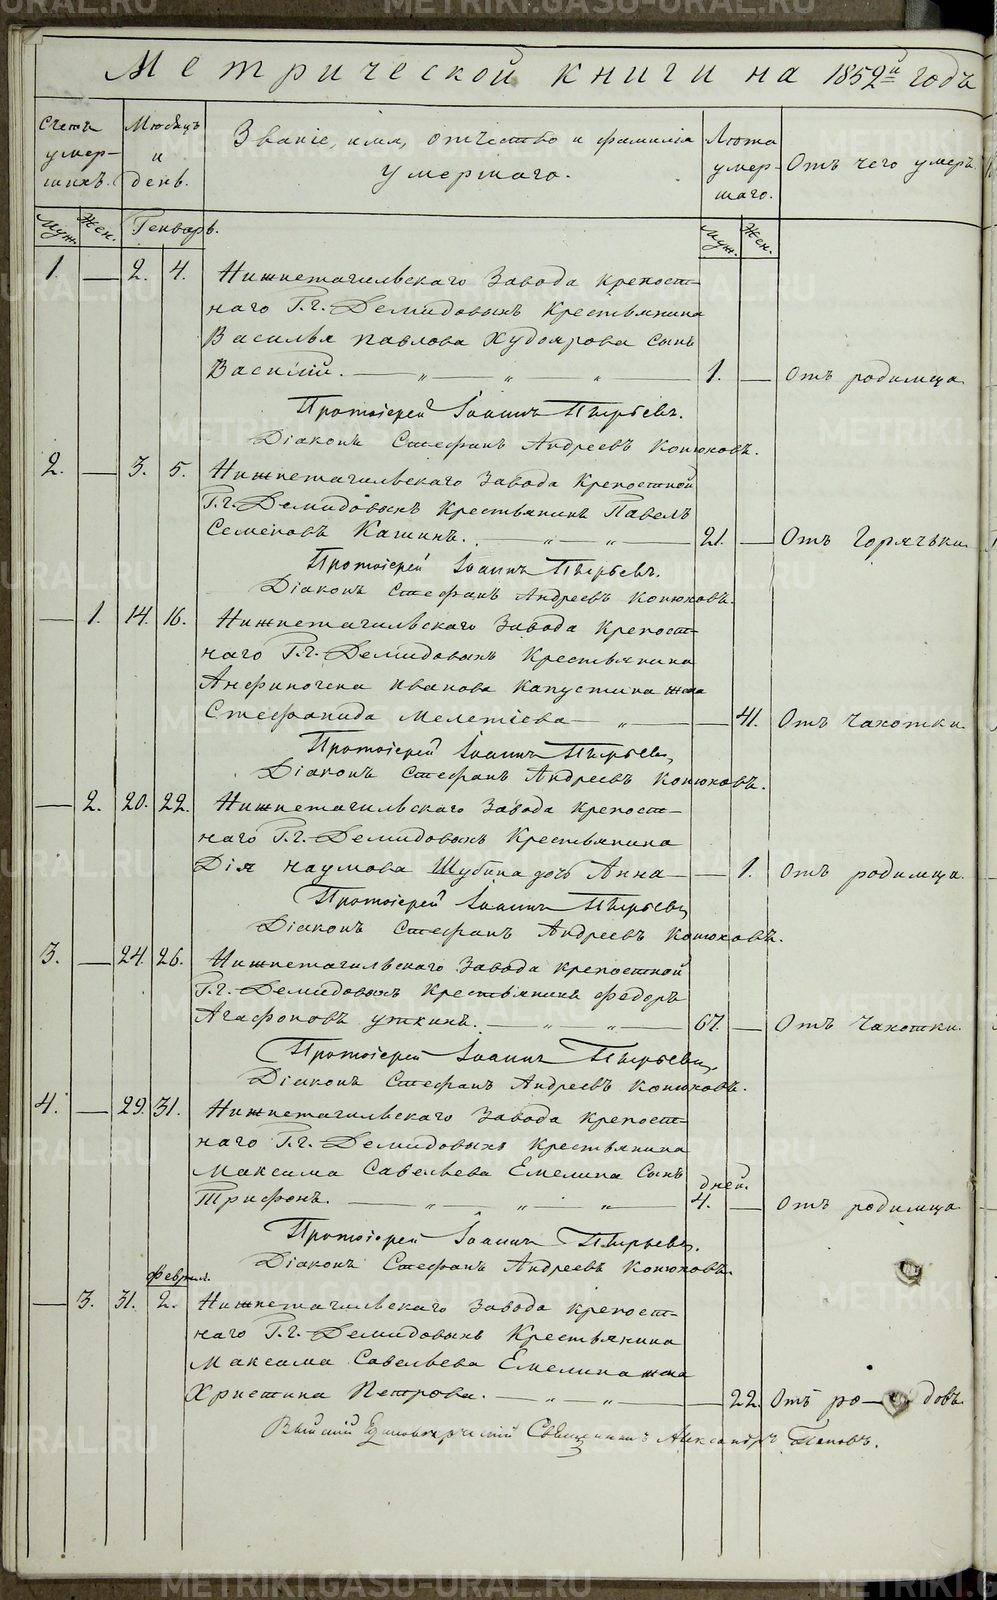 Метрической книги на 1852й годъ
Счетъ умершихъ.
Месяцъ и день.
Званіе, имя, отчество и фамилія умершаго.
Лѣта умершаго.
Отъ чего умеръ.
Муж. Жен. Генварь. Муж. Жен.
1. — 2. 4. Нижнетагильскаго Завода крепост-
наго Г.г. Демидовыхъ Крестьянина
Василья Павлова Худоярова сынъ
Василій. — „ — „ — „ — 1. — Отъ родимца
Протоіерей Іоаннъ Пырьевъ.
Діаконъ Стефанъ Андреевъ Конюховъ.
2. — 3. 5. Нижнетагильскаго Завода Крепостной
Г.г. Демидовыхъ Крестьянинъ Павелъ
Семеновъ Кашинъ. — „ — „ — 21. — Отъ Горячьки.
Протоіерей Іоаннъ Пырьевъ.
Діаконъ Стефанъ Андреевъ Конюховъ.
— 1. 14. 16. Нижнетагильскаго Завода Крепост-
наго Г.г. Демидовыхъ Крестьянина
Анфиногена Иванова Капустина жена
Стефанида Мелетіева — „ — — 41. Отъ Чахотки.
Протоіерей Іоаннъ Пырьевъ,
Діаконъ Стефанъ Андреевъ Конюховъ.
— 2. 20. 22. Нижнетагильскаго Завода крепост-
наго Г.г. Демидовыхъ Крестьянина
Дія Наумова Шубина дочь Анна — — 1. Отъ родимца.
Протоіерей Іоаннъ Пырьевъ
Діаконъ Стефанъ Андреевъ Конюховъ.
3. — 24. 26. Нижнетагильскаго Завода крепостной
Г.г. Демидовыхъ Крестьянинъ Федоръ
Агафоновъ Уткинъ. — „ — „ — 67. — Отъ Чахотки.
Протоіерей Іоаннъ Пырьевъ,
Діаконъ Стефанъ Андреевъ Конюховъ.
4. — 29. 31. Нижнетагильскаго Завода крепост-
наго Г.г. Демидовыхъ Крестьянина
Максима Савельева Емелина Сынъ
дней.
Трифонъ. — „ — „ — „ — 4. — Отъ родимца
Протоіерей Іоаннъ Пырьевъ.
Діаконъ Стефанъ Андреевъ Конюховъ.
феврал.
— 3. 31. 2. Нижнетагильскаго Завода крепост-
наго Г.г. Демидовыхъ Крестьянина
Максима Савельева Емелина жена
Христина Петрова. — „ — „ — — 22. Отъ ро — довъ.
Единоверческій Священникъ Александръ Поповъ.
METRIKI.GASO-URAL.RU